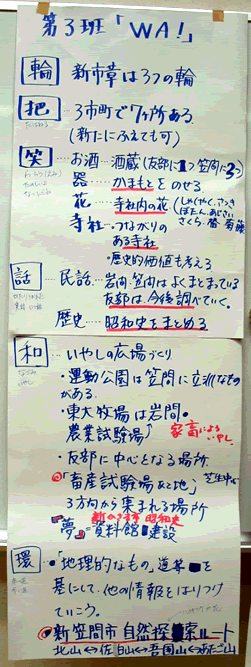 第3班「WA!」
輪 新市章は3つの輪
把 …3市町で7ヶ所ある。
(新たにふえても可)
笑 …お酒…酒蔵(友部に1つ笠間に3つ
器 かまもとをのせる
花 寺社内の花(しゃくやく、さつき
ぼたん、あじさい
さくら・菊
寺社…つながりの
ある寺社
・歴史的価値も考える
話 …民話…岩間・笠間はよくまとまっている
友部は今後調べていく。
歴史…昭和史をまとめる
和 …いやしの広場づくり
・運動公園は笠間に立派なもの
がある。
・東大牧場は岩間。
農業試験場
家畜による
いやし
・友部に中心となる場所
「畜産試験場あと地」芝生中心
3方向から集まれる場所
夢=資料館建設
環 …・「地理的なもの」道等を
基にして、他の情報とはりつけ
ていこう。
新笠間市自然探索ルート
北山↔佐白山↔吾国山↔あたご山